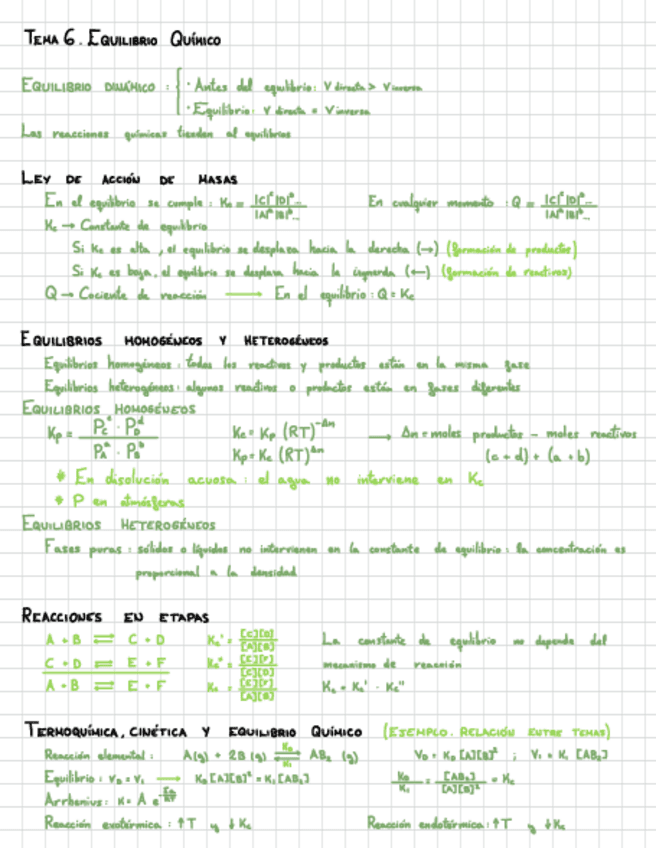 TEMA 6. EQUILIBRIO QUÍMICO
EQUILIBRIO DINÁMICO : { · Antes del equilibrio: V directa > V inversa
· Equilibrio: V directa = V inversa
Las reacciones químicas tienden al equilibrio
LEY DE ACCIÓN DE MASAS
En el equilibrio se cumple : Kc = |C|^c |D|^d... / |A|^a |B|^b... En cualquier momento : Q = |C|^c |D|^d... / |A|^a |B|^b...
Kc → Constante de equilibrio
Si Kc es alta , el equilibrio se desplaza hacia la derecha (→) (formación de productos)
Si Kc es baja, el equilibrio se desplaza hacia la izquierda (←) (formación de reactivos)
Q → Cociente de reacción → En el equilibrio : Q = Kc
EQUILIBRIOS HOMOGÉNEOS Y HETEROGÉNEOS
Equilibrios homogéneos : todos los reactivos y productos están en la misma fase
Equilibrios heterogéneos : algunos reactivos o productos están en fases diferentes
EQUILIBRIOS HOMOGÉNEOS
Kp = P_C^c · P_D^d / P_A^a · P_B^b Kc = Kp (RT)^-Δn → Δn = moles productos - moles reactivos
Kp = Kc (RT)^Δn (c + d) + (a + b)
* En disolución acuosa : el agua no interviene en Kc
* P en atmósferas
EQUILIBRIOS HETEROGÉNEOS
Fases puras : sólidos o líquidos no intervienen en la constante de equilibrio : la concentración es
proporcional a la densidad
REACCIONES EN ETAPAS
A + B ⇌ C + D Kc' = [C][D] / [A][B] La constante de equilibrio no depende del
C + D ⇌ E + F Kc'' = [E][F] / [C][D] mecanismo de reacción
A + B ⇌ E + F Kc = [E][F] / [A][B] Kc = Kc' · Kc''
TERMOQUÍMICA, CINÉTICA Y EQUILIBRIO QUÍMICO (EJEMPLO. RELACIÓN ENTRE TEMAS)
Reacción elemental : A(g) + 2B (g) ⇌ AB₂ (g) V_D = K_D [A][B]² ; V_i = K_i [AB₂]
Equilibrio : V_D = V_i → K_D [A][B]² = K_i [AB₂] K_D / K_i = [AB₂] / [A][B]² = Kc
Arrhenius : K = A e
Reacción exotérmica : ↑T y ↓Kc Reacción endotérmica : ↑T y ↓Kc